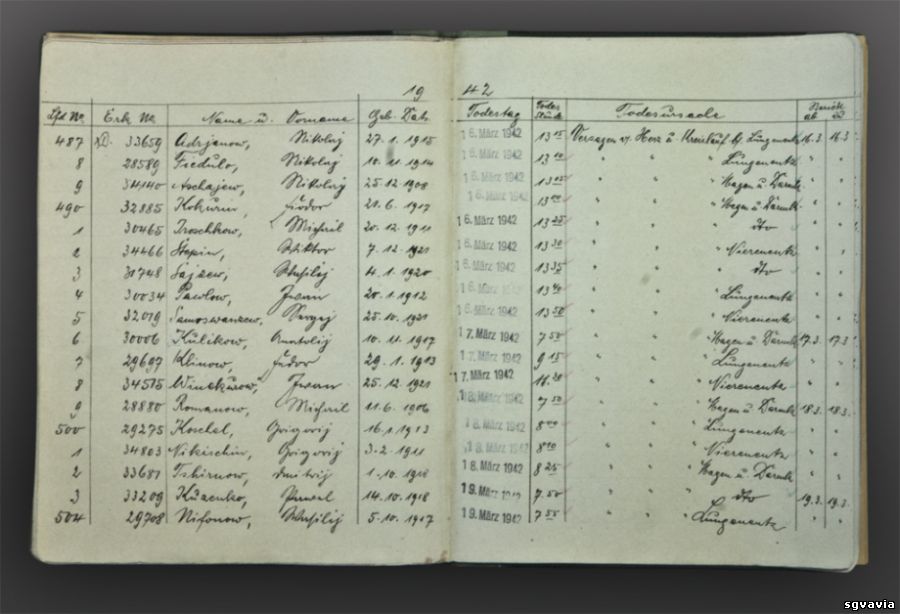 19 42
Lfd Nr. Erk. Nr. Name u. Vorname Geb. Dat. Todestag Todes Stunde Todesursache Bericht ab
487 33659 Adrjanow, Nikolaj 27.1.1915 16. März 1942 13 Versagen v. Herz u. Kreislauf b/ Lungenentz. 16.3. 16.3
8 28589 Fiedulo, Nikolaj 10.11.1914 16. März 1942 13 " " " Lungenentz. " "
9 34140 Aschajew, Nikolaj 25.12.1908 16. März 1942 13 " " " Magen u. Darmk. " "
490 32885 Kokurin, Fiodor 21.6.1917 16. März 1942 13 " " " Magen u. Darmk. " "
1 30465 Troschkow, Michail 20.12.1911 16. März 1942 13 25 " " " dto " "
2 34466 Stepin, Wiktor 7.12.1921 16. März 1942 13 30 " " " Nierenentz. " "
3 31748 Sajzew, Wasilij 4.1.1920 16. März 1942 13 35 " " " dto " "
4 30034 Pawlow, Iwan 20.1.1912 16. März 1942 13 40 " " " Lungenentz. " "
5 32019 Sergij 25.10.1921 16. März 1942 13 50 " " " Nierenentz. " "
6 30006 Kulikow, Anatolij 10.11.1917 17. März 1942 7 50 " " " Magen u. Darmk. 17.3. 17.3
7 29697 Klinow, Fedor 29.1.1913 17. März 1942 9 15 " " " Lungenentz. " "
8 34515 Winokurow, Iwan 25.12.1921 17. März 1942 16 20 " " " Nierenentz. " "
9 28880 Romanow, Michail 11.6.1906 18. März 1942 7 50 " " " Magen u. Darmk. 18.3. 18.3.
500 29275 Koschel, Grigorij 16.1.1913 18. März 1942 8 " " " Lungenentz. " "
1 34803 Nikischin, Grigorij 3.2.1911 18. März 1942 8 " " " Nierenentz. " "
2 33687 Tschirnow, Dmitrij 1.10.1918 18. März 1942 8 25 " " " Magen u. Darmk. " "
3 33209 Pawel 14.10.1918 19. März 1942 7.50 " " " dto 19.3. 19.3.
504 29708 Nifonow, Wasilij 5.10.1917 19. März 1942 7 55 " " " Lungenentz. " "
sgvavia